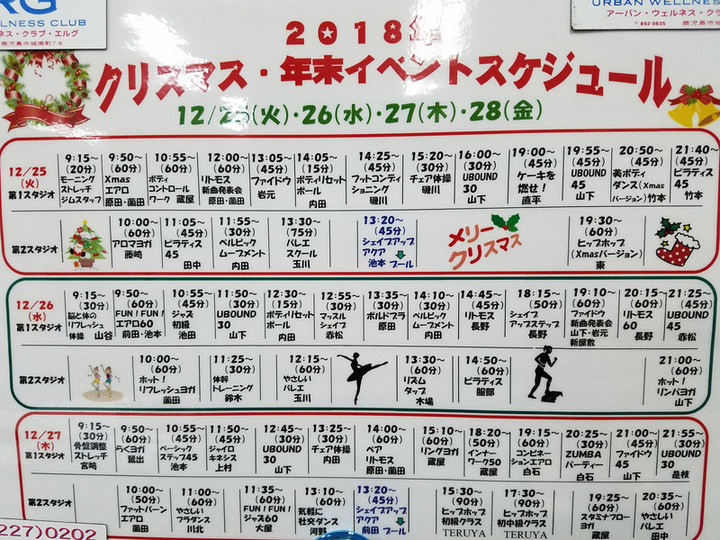 RG
LLNESS CLUB
ネス・クラブ・エルグ
鹿児島市城南町7-8
URBAN WELLNESS
アーバン・ウェルネス・クラブ
〒892-0835
2018年
クリスマス・年末イベントスケジュール
12/25(火)・26(水)・27(木)・28(金)
12/25
(火)
第1スタジオ
9:15〜
(20分)
モーニング
ストレッチ
ジムスタッフ
9:50〜
(60分)
Xmas
エアロ
原田・薗田
10:55〜
(60分)
ボディ
コントロール
ワーク 蔵屋
12:00〜
(60分)
リトモス
新曲発表会
原田・薗田
13:05〜
(45分)
ファイドウ
岩元
14:05〜
(15分)
ボディリセット
ポール
内田
14:25〜
(45分)
フットコンディ
ショニング
磯川
15:20〜
(30分)
チェア体操
磯川
16:00〜
(30分)
UBOUND
30
山下
19:00〜
(45分)
ケーキを
燃せ!
直平
19:55〜
(45分)
UBOUND
45
山下
20:50〜
(45分)
美ボディ
ダンス(Xmas
バージョン)竹本
21:40〜
(45分)
ピラティス
45
竹本
第2スタジオ
10:00〜
(60分)
アロマヨガ
藤崎
11:05〜
(45分)
ピラティス
45
田中
11:55〜
(30分)
ペルビック
ムーブメント
内田
13:30〜
(75分)
バレエ
スクール
玉川
13:20〜
(45分)
シェイプアップ
アクア
池本 プール
メリー
クリスマス
19:30〜
(60分)
ヒップホップ
(Xmasバージョン)
東
12/26
(水)
第1スタジオ
9:15〜
(30分)
脳と体の
リフレッシュ
体操 山谷
9:50〜
(60分)
FUN!FUN!
エアロ60
前田・池本
10:55〜
(45分)
ジャズ
初級
池田
11:50〜
(30分)
UBOUND
30
山下
12:30〜
(15分)
ボディリセット
ポール
内田
12:55〜
(30分)
マッスル
シェイプ
赤松
13:35〜
(30分)
ポルドブラ
原田
14:10〜
(30分)
ペルビック
ムーブメント
内田
14:45〜
(45分)
リトモス
長野
18:15〜
(50分)
シェイプ
アップステップ
長野
19:10〜
(60分)
ファイドウ
新曲発表会
山下・岩元
新屋敷
20:15〜
(60分)
リトモス
60
長野
21:25〜
(45分)
UBOUND
45
赤松
第2スタジオ
10:00〜
(60分)
ホット!
リフレッシュヨガ
薗田
11:25〜
(30分)
体幹
トレーニング
鈴木
12:15〜
(60分)
やさしい
バレエ
玉川
13:30〜
(60分)
リズム
タップ
木場
14:50〜
(60分)
ピラティス
服部
21:00〜
(60分)
ホット!
リンパヨガ
山下
12/27
(木)
第1スタジオ
9:15〜
(30分)
骨盤調整
ストレッチ
宮崎
9:50〜
(60分)
らくヨガ
鷲出
10:55〜
(45分)
ベーシック
ステップ45
池本
11:50〜
(45分)
ジャイロ
キネシス
上村
12:45〜
(30分)
UBOUND
30
山下
13:25〜
(30分)
チェア体操
内田
14:00〜
(60分)
ペア
リトモス
原田・薗田
15:10〜
(60分)
リングヨガ
蔵屋
18:20〜
(50分)
インナー
ワーク50
蔵屋
19:15〜
(60分)
コンビネー
ションエアロ
白石
20:25〜
(30分)
ZUMBA
パーティー
白石
21:00〜
(45分)
ファイドウ
45
山下
21:55〜
(30分)
UBOUND
30
是枝
第2スタジオ
10:00〜
(50分)
ファットバーン
エアロ
薗田
11:00〜
(60分)
やさしい
フラダンス
川北
11:35〜
(60分)
FUN!FUN!
ジャズ60
大屋
13:10〜
(60分)
気軽に
社交ダンス
河野
13:20〜
(45分)
シェイプアップ
アクア
前田 プール
15:30〜
(90分)
ヒップホップ
初級クラス
TERUYA
17:30〜
(90分)
ヒップホップ
初中級クラス
TERUYA
19:25〜
(60分)
スタミナフロー
ヨガ
蔵屋
20:35〜
(60分)
やさしい
バレエ
田中
227)0202